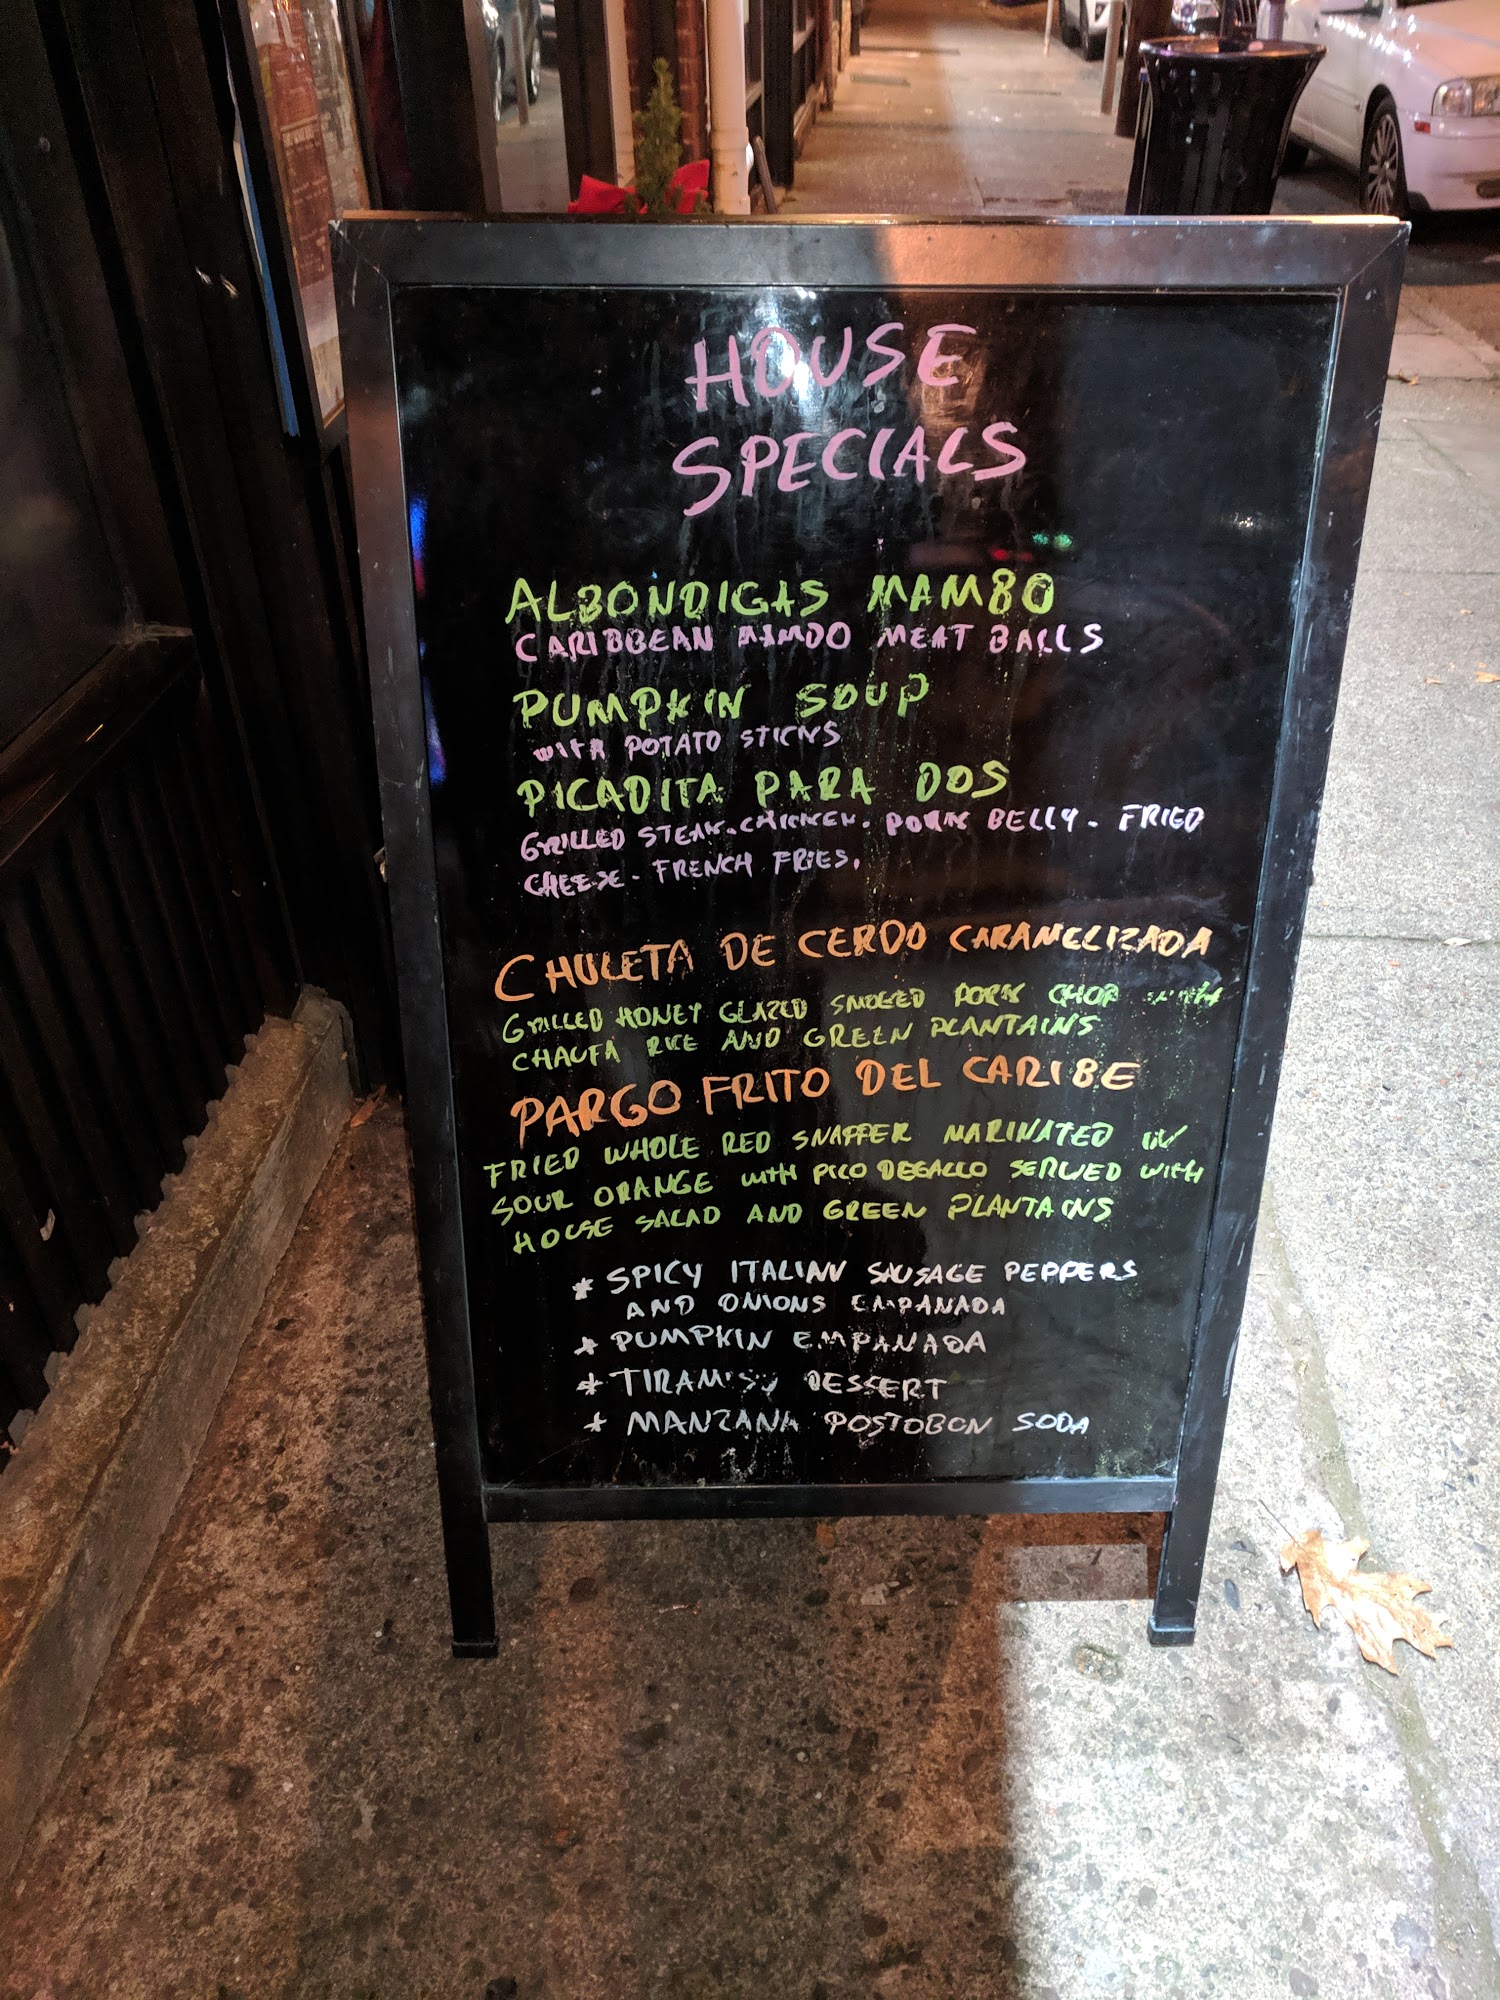 HOUSE
SPECIALS
ALBONDIGAS MAMBO
CARIBBEAN MEAT BALLS
PUMPKIN SOUP
WITH POTATO STICKS
PICADITA PARA DOS
GRILLED STEAK. CHICKEN. PORK BELLY. FRIED
CHEESE. FRENCH FRIES.
CHULETA DE CERDO CARAMELIZADA
GRILLED HONEY GLAZED SMOKED PORK CHOP WITH
CHAUFA RICE AND GREEN PLANTAINS
PARGO FRITO DEL CARIBE
FRIED WHOLE RED SNAPPER MARINATED IN
SOUR ORANGE WITH PICO DEGALLO SERVED WITH
HOUSE SALAD AND GREEN PLANTAINS
* SPICY SAUSAGE PEPPERS
AND ONIONS EMPANADA
* PUMPKIN EMPANADA
* DESSERT
* MANZANA POSTOBON SODA